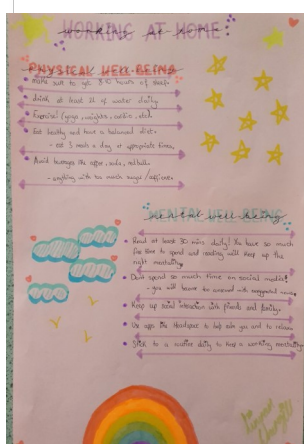 WORKING AT HOME
working at home
PHYSICAL WELL-BEING
• make sure to get 8-10 hours of sleep.
• drink at least 2L of water daily.
• Exercise! (yoga, weights, cardio, etc).
• Eat healthy and have a balanced diet.
- eat 3 meals a day at appropriate times.
• Avoid beverages like coffee, soda, redbulls
- anything with too much sugar/caffeine
mental well-being
• Read at least 30 mins daily! You have so much
free time to spend and reading will keep up the
right mentality
• Don't spend so much time on social media!
- you will become too consumed with
• Keep up social interaction with friends and family.
• Use apps like Headspace to help calm you and to relax.
• Stick to a routine daily to keep a working mentality.